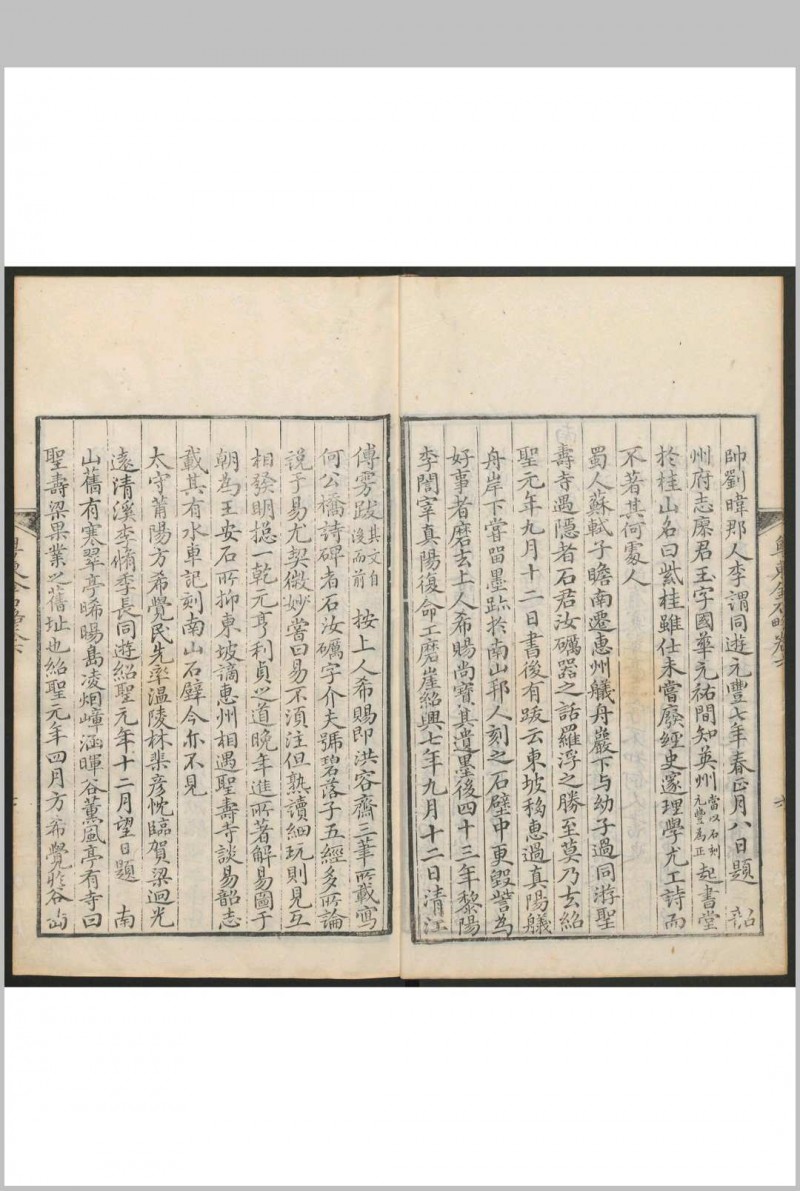 帥劉暐郡人李謂同遊元豐七年春正月八日題　韶
州府志縻君玉字國華元祐間知英州當以石刻元豐為正起書堂
於桂山名曰紫桂雖仕未嘗廢經史邃理學尤工詩而
不著其何處人
蜀人蘇軾子瞻南遷惠州艤舟巖下与幼子過同游聖
壽寺遇隱者石君汝礪器之話羅浮之勝至莫乃去紹
聖元年九月十二日書後有跋云東坡移惠過真陽艤
舟岸下嘗畱墨跡於南山郡人刻之石壁中更毀訾為
好事者磨去上人希賜尚寶其遺墨後四十三年黎陽
李誾宰真陽復命工磨崖紹興七年九月十二日清江
傅雱跋其文自後而前按上人希賜即洪容齋三筆所載寫
何公橋詩碑者石汝礪字介夫號碧落子五經多所論
說于易尤契微妙嘗曰易不須注但熟讀細玩則見互
相發明揔一乾元亨利貞之道晚年進所著解易圖于
朝為王安石所抑東坡謫惠州相遇聖壽寺談易韶志
載其有水車記刻南山石壁今亦不見
太守莆陽方希覺民先率溫陵林棐彥忱臨賀梁迥光
遠清溪李脩季長同遊紹聖元年十二月望日題　南
山舊有寒翠亭晞暘島凌烟嶂涵暉谷薰風亭有寺曰
聖壽梁果業之舊址也紹聖元年四月方希覺於谷崗